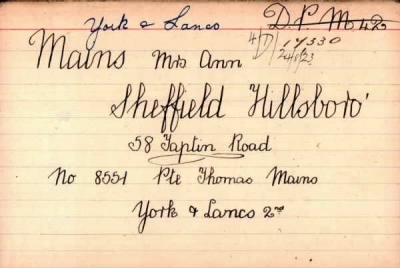 York & Lancs
D.P. M 42
4/D/ 19330
Mains Mrs Ann
Sheffield 'Hillsboro'
58 Taptin Road
No 8551 Pte Thomas Mains
York & Lancs 2nd